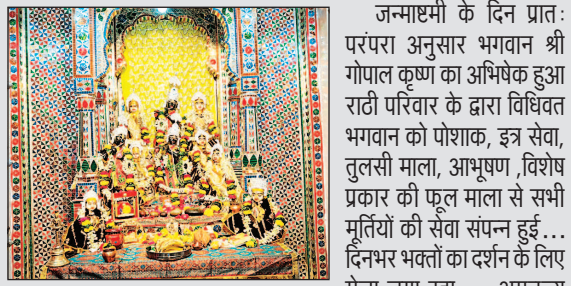 जन्माष्टमी के दिन प्रातः
परंपरा अनुसार भगवान श्री
गोपाल कृष्ण का अभिषेक हुआ
राठी परिवार के द्वारा विधिवत
भगवान को पोशाक, इत्र सेवा,
तुलसी माला, आभूषण ,विशेष
प्रकार की फूल माला से सभी
मूर्तियों की सेवा संपन्न हुई...
दिनभर भक्तों का दर्शन के लिए